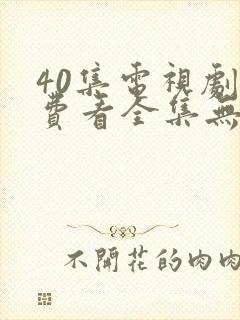 40集電視劇
費看全集無
不開花的肉肉